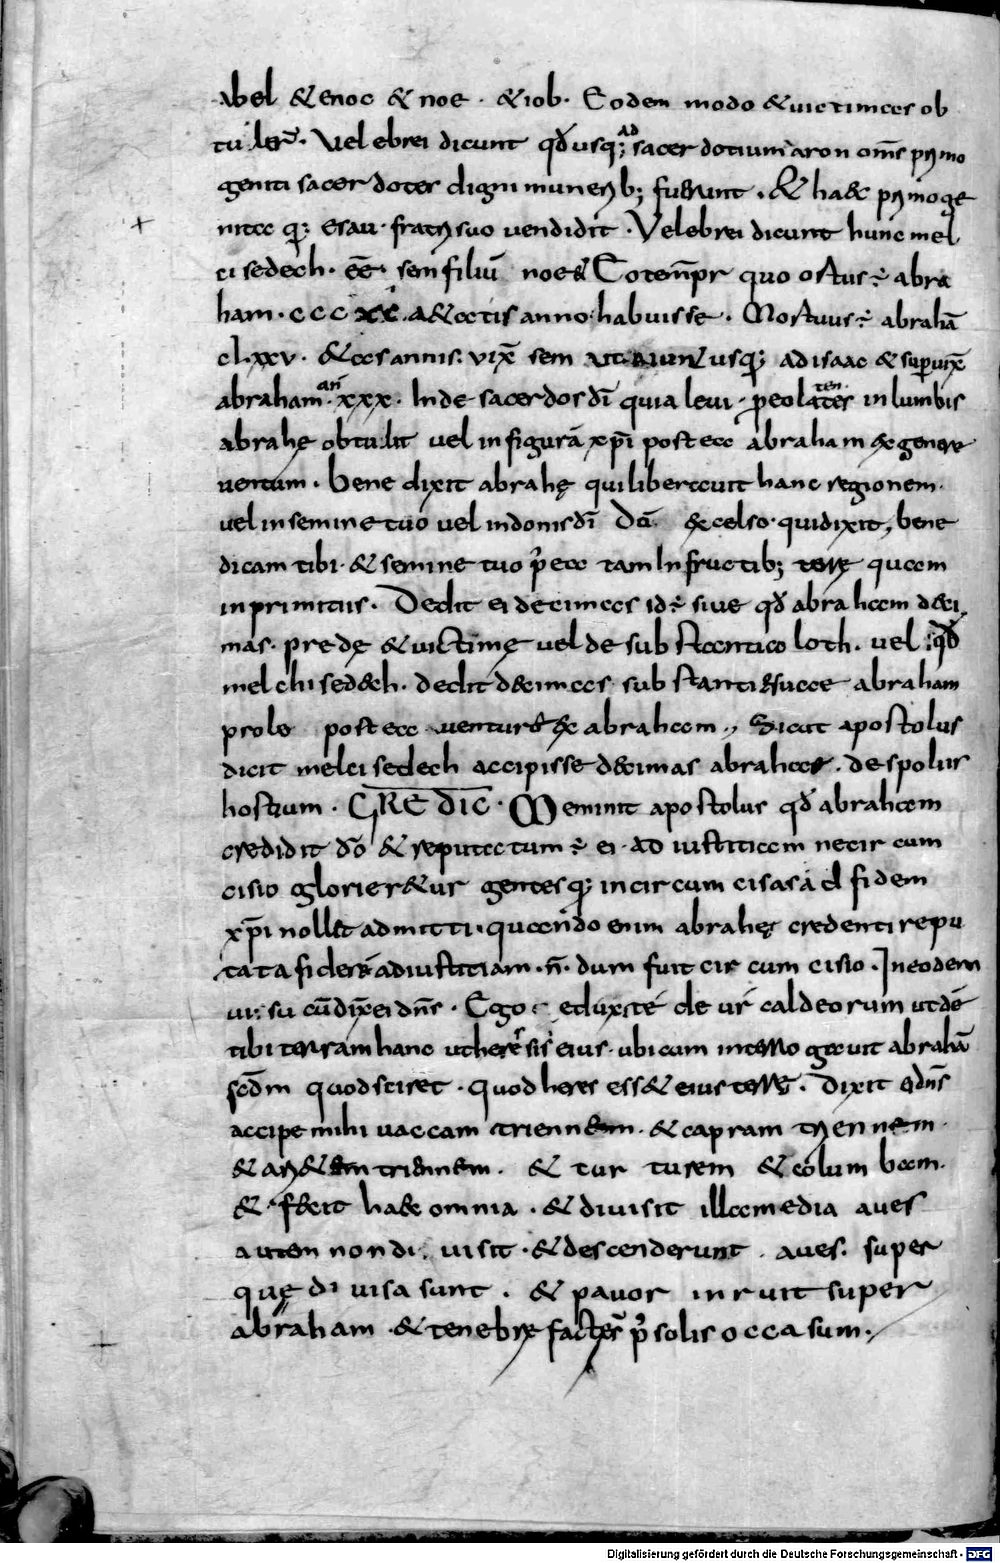 abel & enoc & noe · & iob · Eodem modo & uictimas ob
tuler̄ · Vel ebrei dicunt qđ usq; ad sacerdotium aron om̄s primo
geniti sacerdotes digni munerib; fuerunt · & haec primoge
nita q; esau · fratri suo uendidit · Vel ebrei dicunt hunc mel
ci sedech · eē · sem filiū noe & eo temp̄r quo ortus ÷ abra
ham · ccc xc · a&atis anno habuisse · Mortuus ÷ abrahā
clxxv · &as annis uix̄ sem usq; ad isaac & superuix̄
abraham an̄ xxx · Inde sacerdos dī quia leui · in lumbis
abrahę obtulit uel in figurā xp̄i post ea abraham ex genere
uenturum · bene dixit abrahę qui liberauit hanc regionem ·
uel in semine tuo uel in donis dī Dō excelso · qui dixit, bene
dicam tibi · & semine tuo p̄ ea tam in fructib; terrę quam
in primitiis · Dedit ei decimas id ÷ siue qđ abraham deci
mas · predę & uictimę uel de substantia loth · uel qđ
mel chi sedech · dedit decimas substantię suae abraham
prole post ea uenture ex abraham ·, Sicut apostolus
dicit melci sedech accipisse decimas abrahae · de spoliis
hostium · GRE DIC · Meminit apostolus qđ abraham
credidit dō & reputatum ÷ ei · ad iustitiam ne cir cum
cisio glorier&ur gentesq; in circum cisas ad fidem
xp̄i nollet admitti · quando enim abrahę credenti repu
tata fides ÷ ad iustitiam · n̄ · dum fuit cir cum cisio · In eodem
ui su cū dix̄ ei dn̄s · Ego eduxi te de ur caldeorum ut dē
tibi terram hanc ut heres sis eius · ubi cum interrogauit abrahā
scđm quod sciret · quod heres ess& eius terrę · Dixit ei dn̄s
accipe mihi uaccam triennem · & capram triennem ·
& ari&em triennem · & tur turem & columbam ·
& fecit haec omnia · & diuisit illa media aues
autem non di uisit · & descenderunt aues · super
quę di uisa sunt · & pauor inruit super
abraham · & tenebrę factę sr̄ p̄ solis occasum ·